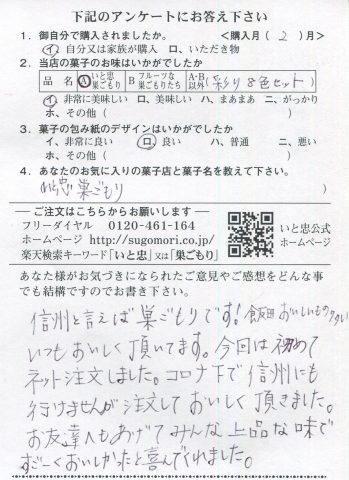 下記のアンケートにお答え下さい
1．御自分で購入されましたか。　＜購入月（ 2 ）月＞
イ、自分又は家族が購入　ロ、いただき物
2．当店の菓子のお味はいかがでしたか
品　名　A いと忠巣ごもり　B フルーツな巣ごもりたち　A・B以外（彩り8色セット）
イ、非常に美味しい　ロ、美味しい　ハ、まあまあ　ニ、がっかり
ホ、その他（　　　）
3．菓子の包み紙のデザインはいかがでしたか
イ、非常に良い　ロ、良い　ハ、普通　ニ、悪い
ホ、その他（　　　）
4．あなたのお気に入りの菓子店と菓子名を教えて下さい。
いと忠 巣ごもり　）
― ご注文はこちらからお願いします ―
フリーダイヤル　0120-461-164
ホームページ　http://sugomori.co.jp/
楽天検索キーワード「いと忠」又は「巣ごもり」
いと忠公式
ホームページ
あなた様がお気づきになられたご意見やご感想をどんな事
でも結構ですのでお書き下さい。
信州と言えば巣ごもりです! 飯田おいしいもの
いつもおいしく頂いてます。今回は初めて
ネット注文しました。コロナ下で信州にも
行けませんが注文しておいしく頂きました。
お友達へもあげてみんな上品な味で
すごーくおいしかったと喜んでくれました。